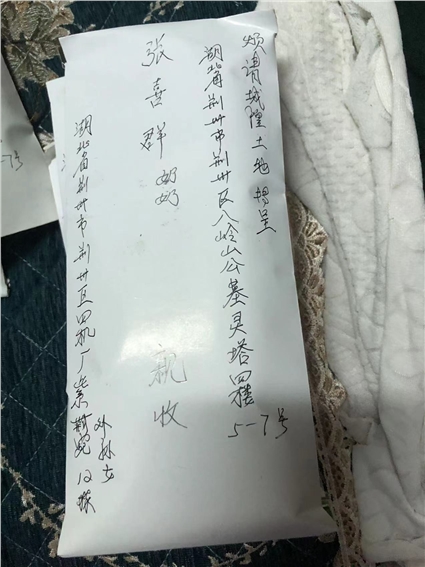 烦请城隍土地揚呈
湖北省荆州市荆州区八岭山公墓灵塔四楼
5-7号
张喜群奶奶 亲收
湖北省荆州市荆州区四机厂紫荆苑12栋
外孙女
7号